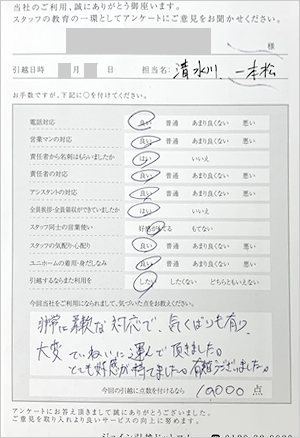 当社のご利用、誠にありがとう御座います。
スタッフの教育の一環としてアンケートにご意見をお聞かせください。
様
引越日時 月 日 担当名: 清水川、一本松
お手数ですが、下記に○を付けてください。
電話対応 良い 普通 あまり良くない 悪い
営業マンの対応 良い 普通 あまり良くない 悪い
責任者から名刺はもらいましたか はい いいえ
責任者の対応 良い 普通 あまり良くない 悪い
アシスタントの対応 良い 普通 あまり良くない 悪い
全員挨拶・全員着収ができていましたか はい いいえ
スタッフ同士の言葉使い 好感がもてる もてない
スタッフの気配り・心配り 良い 普通 あまり良くない 悪い
ユニホームの着用・身だしなみ 良い 普通 あまり良くない 悪い
引越するならまた利用を したい したくない どちらともいえない
今回当社をご利用になられまして、気づいた点をお教えください。
非常に柔軟な対応で、気くばりも有り
大変ていねいに運んで頂きました。
とても好感が持てました。有難うございました。
今回の引越に点数を付けるなら 10000 点
アンケートにお答え頂きまして誠にありがとうございました。
ご意見を取り入れより良いサービスの向上に努めます。